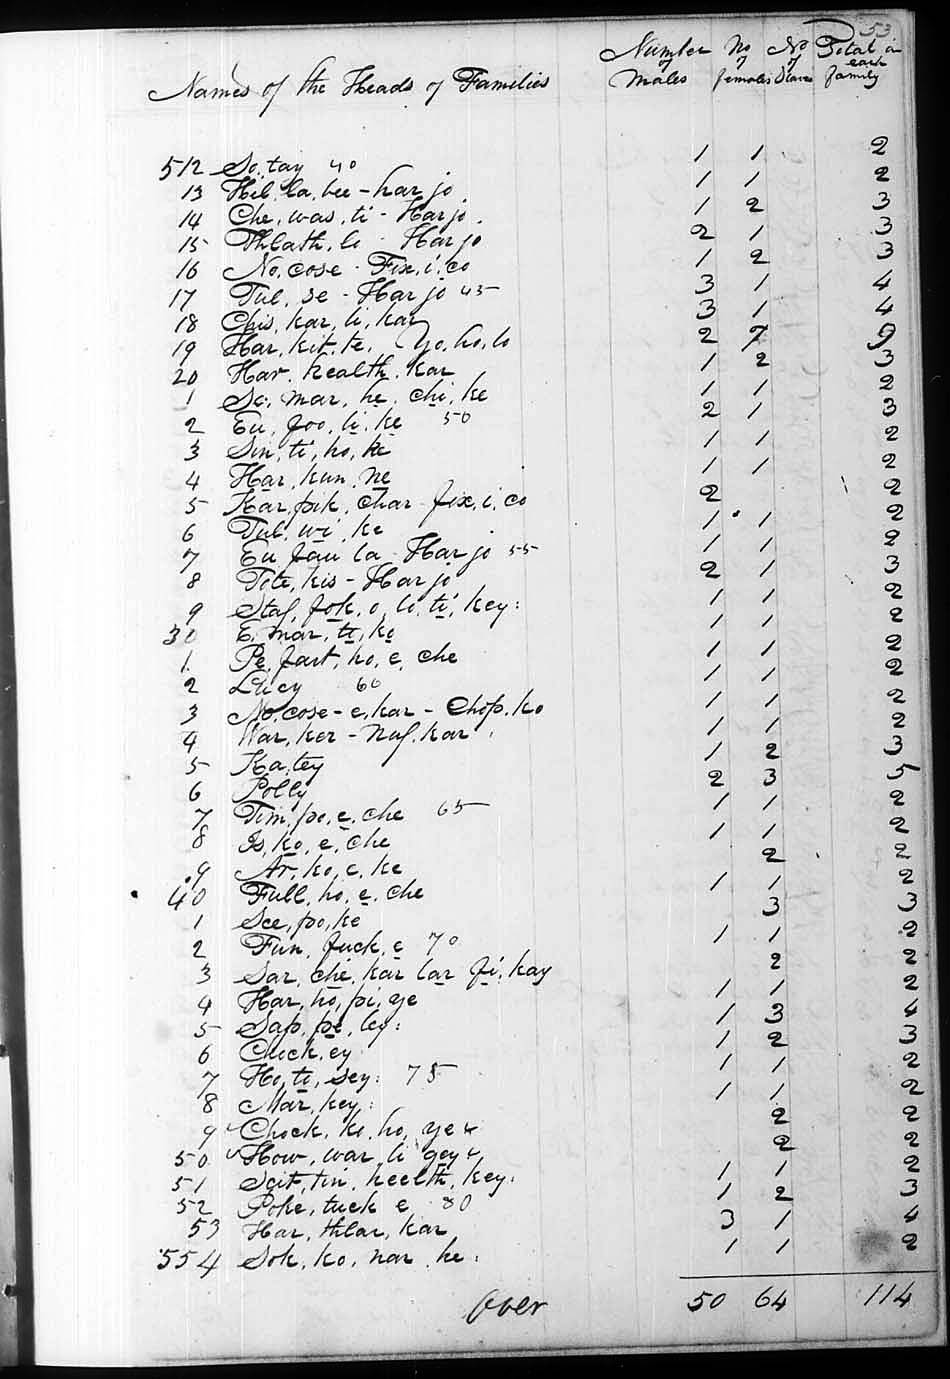 53
Names of the Heads of Families Number of Males No of females No of Slaves Total in each family
512 So,tay 40 1 1 2
13 Hil,la,bee - har jo 1 1 2
14 Che,was,ti - Harjo 1 2 3
15 Thlath,lo - Harjo 2 1 3
16 No,cose - Fix,i,co 1 2 3
17 Tul,se - Harjo 45 3 1 4
18 Chis,kar,li,kar 3 1 4
19 Har,kit,te, Yo,ho,lo 2 7 9
20 Har,health,kar 1 2 3
1 So,mar,he,chi,ke 1 1 2
2 Eu,foo,li,ke 50 2 1 3
3 Sin,ti,ho,ke 1 1 2
4 Har,kun,ne 1 1 2
5 Kar,pik,char - fix,i,co 2 2
6 Tul,wi,ke 1 1 2
7 Eu fau la - Harjo 55 1 1 2
8 Tote,kis - Harjo 2 1 3
9 Staf,fok,o,li,ti,key: 1 1 2
30 E,mar,ti,ko 1 1 2
1 Pe,fart,ho,e,che 1 1 2
2 Lucy 60 1 1 2
3 No,cose - e,kar - Chop,ko 1 1 2
4 War,ker - Nuf,kar 1 1 2
5 Ka,tey 1 2 3
6 Polly 2 3 5
7 Tim,po,e,che 65 1 1 2
8 Is,ko,e,che 1 1 2
9 Ar,ko,e,ke 2 2
40 Full,ho,e,che 1 1 2
1 See,po,ke 3 3
2 Fun,fuck,e 70 1 1 2
3 Sar,che,kar lar fi,kay 2 2
4 Har,ho,pi,ye 1 1 2
5 Sap,pe,ley: 1 3 4
6 Chick,ey 1 2 3
7 Ho,ti,sey: 75 1 1 2
8 Mar,key: 1 1 2
9 Chock,ke,ho,ye 2 2
50 How,war,li gey 2 2
51 Scit,tin,heelth,key: 1 1 2
52 Poke,tuck e 80 1 2 3
53 Har,thlar,kar 3 1 4
554 Sok,ko,nar,he: 1 1 2
Over 50 64 114